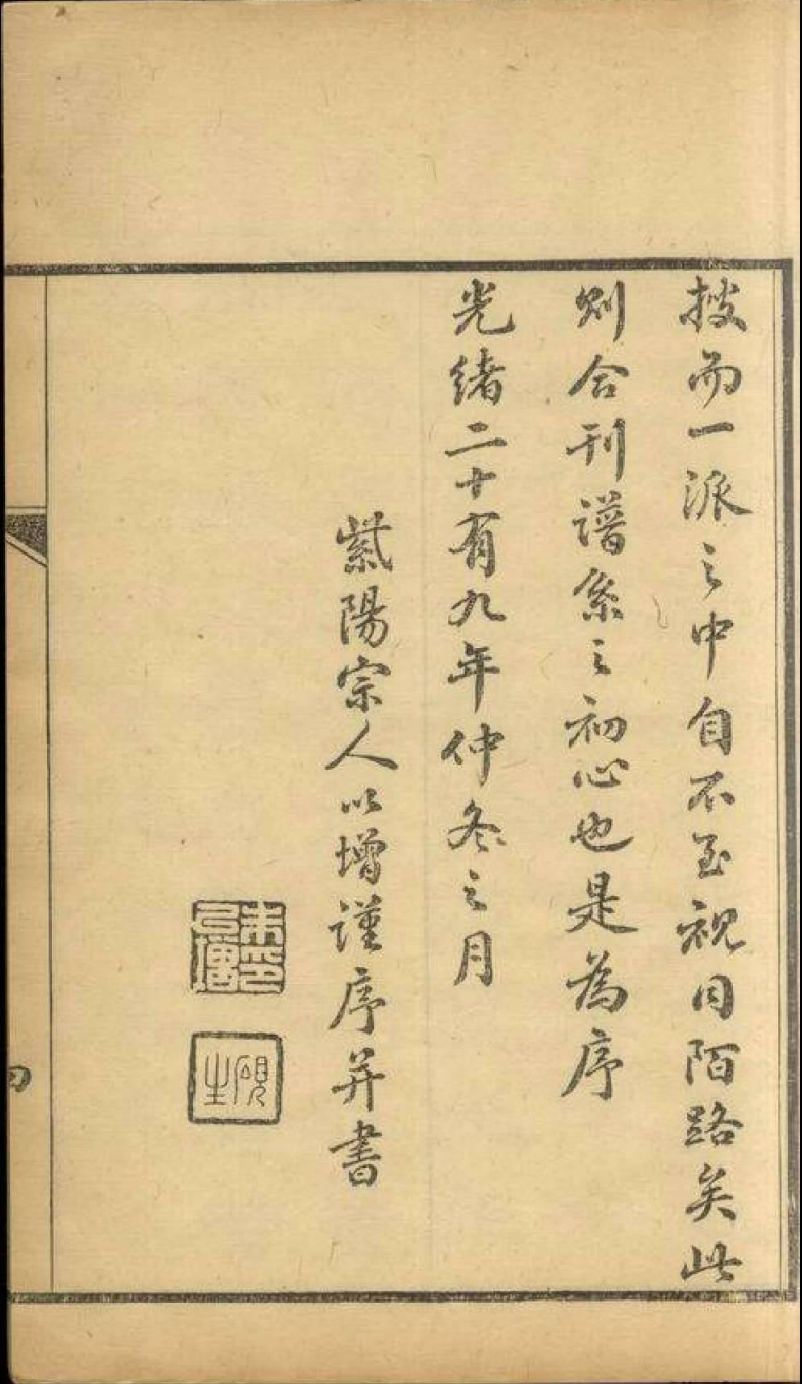 披而一派之中自不至視同陌路矣此
則合刊譜系之初心也是為序
光緒二十有九年仲冬之月
紫陽宗人以增謹序并書
朱印以增
硯生